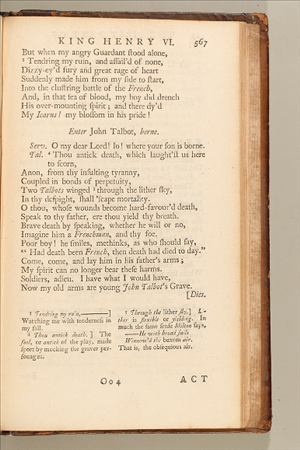 KING HENRY VI. 567
But when my angry Guardant ſtood alone,
¹ Tendring my ruin, and aſſail'd of none,
Dizzy-ey'd fury and great rage of heart
Suddenly made him from my ſide to ſtart,
Into the cluſtring battle of the French,
And, in that ſea of blood, my boy did drench
His over-mounting ſpirit; and there dy'd
My Icarus! my bloſſom in his pride!
Enter John Talbot, borne.
Serv. O my dear Lord! lo! where your ſon is borne.
Tal. Thou antick death, which laugh'ſt us here
to ſcorn,
Anon, from thy inſulting tyranny,
Coupled in bonds of perpetuity,
Two Talbots winged through the lither ſky,
In thy deſpight, ſhall 'ſcape mortality.
O thou, whoſe wounds become hard-favour'd death,
Speak to thy father, ere thou yield thy breath.
Brave death by ſpeaking, whether he will or no,
Imagine him a Frenchman, and thy foe.
Poor boy! he ſmiles, methinks, as who ſhould ſay,
" Had death been French, then death had died to day."
Come, come, and lay him in his father's arms;
My ſpirit can no longer bear theſe harms.
Soldiers, adieu. I have what I would have,
Now my old arms are young John Talbot's Grave.
[Dies.
¹ Tendring my ruin,——]
Watching me with tenderneſs in
my fall.
² Thou antick death, ] The
fool, or antick of the play, made
ſport by mocking the graver per-
ſonages.
³ Through the lither ſky,] Li-
ther is flexible or yielding. In
much the ſame ſenſe Milton ſays,
——He with broad ſails
Winnow'd the buxom air.
That is, the obſequious air.
Oo4 ACT